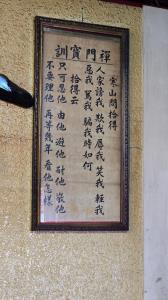 禪門寶訓
寒山問拾得
人家謗我 欺我 辱我 笑我 輕我
惡我 罵我 騙我時如何
拾得云
只可忍他 由他 避他 耐他 敬他
不要理他 再等幾年 看他怎樣